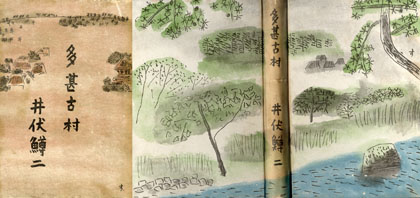 多甚古村
井伏鱒二
多甚古村
井伏鱒二